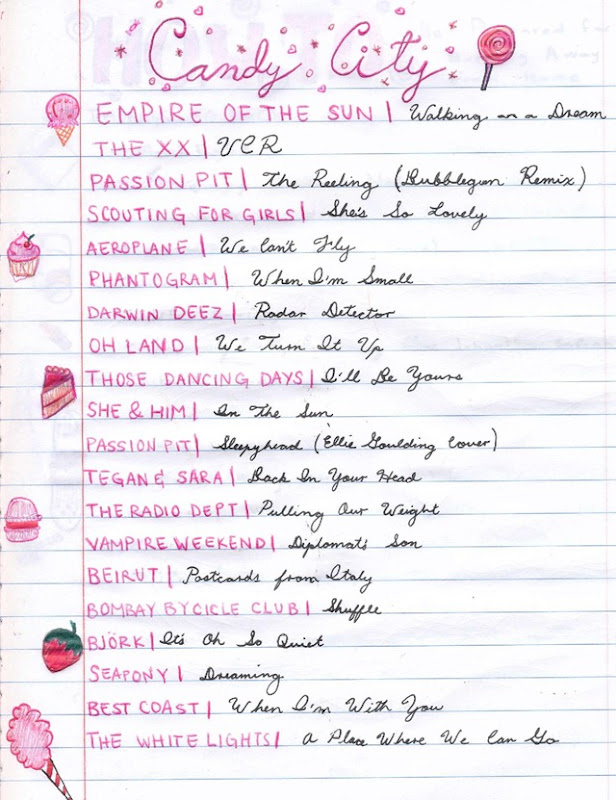 Candy City
EMPIRE OF THE SUN | Walking on a Dream
THE XX | VCR
PASSION PIT | The Reeling (Bubblegum Remix)
SCOUTING FOR GIRLS | She's So Lovely
AEROPLANE | We Can't Fly
PHANTOGRAM | When I'm Small
DARWIN DEEZ | Radar Detector
OH LAND | We Turn It Up
THOSE DANCING DAYS | I'll Be Yours
SHE & HIM | In The Sun
PASSION PIT | Sleepyhead (Ellie Goulding Cover)
TEGAN & SARA | Back In Your Head
THE RADIO DEPT | Pulling Our Weight
VAMPIRE WEEKEND | Diplomat's Son
BEIRUT | Postcards from Italy
BOMBAY BYCICLE CLUB | Shuffle
BJÖRK | It's Oh So Quiet
SEAPONY | Dreaming
BEST COAST | When I'm With You
THE WHITE LIGHTS | A Place Where We Can Go